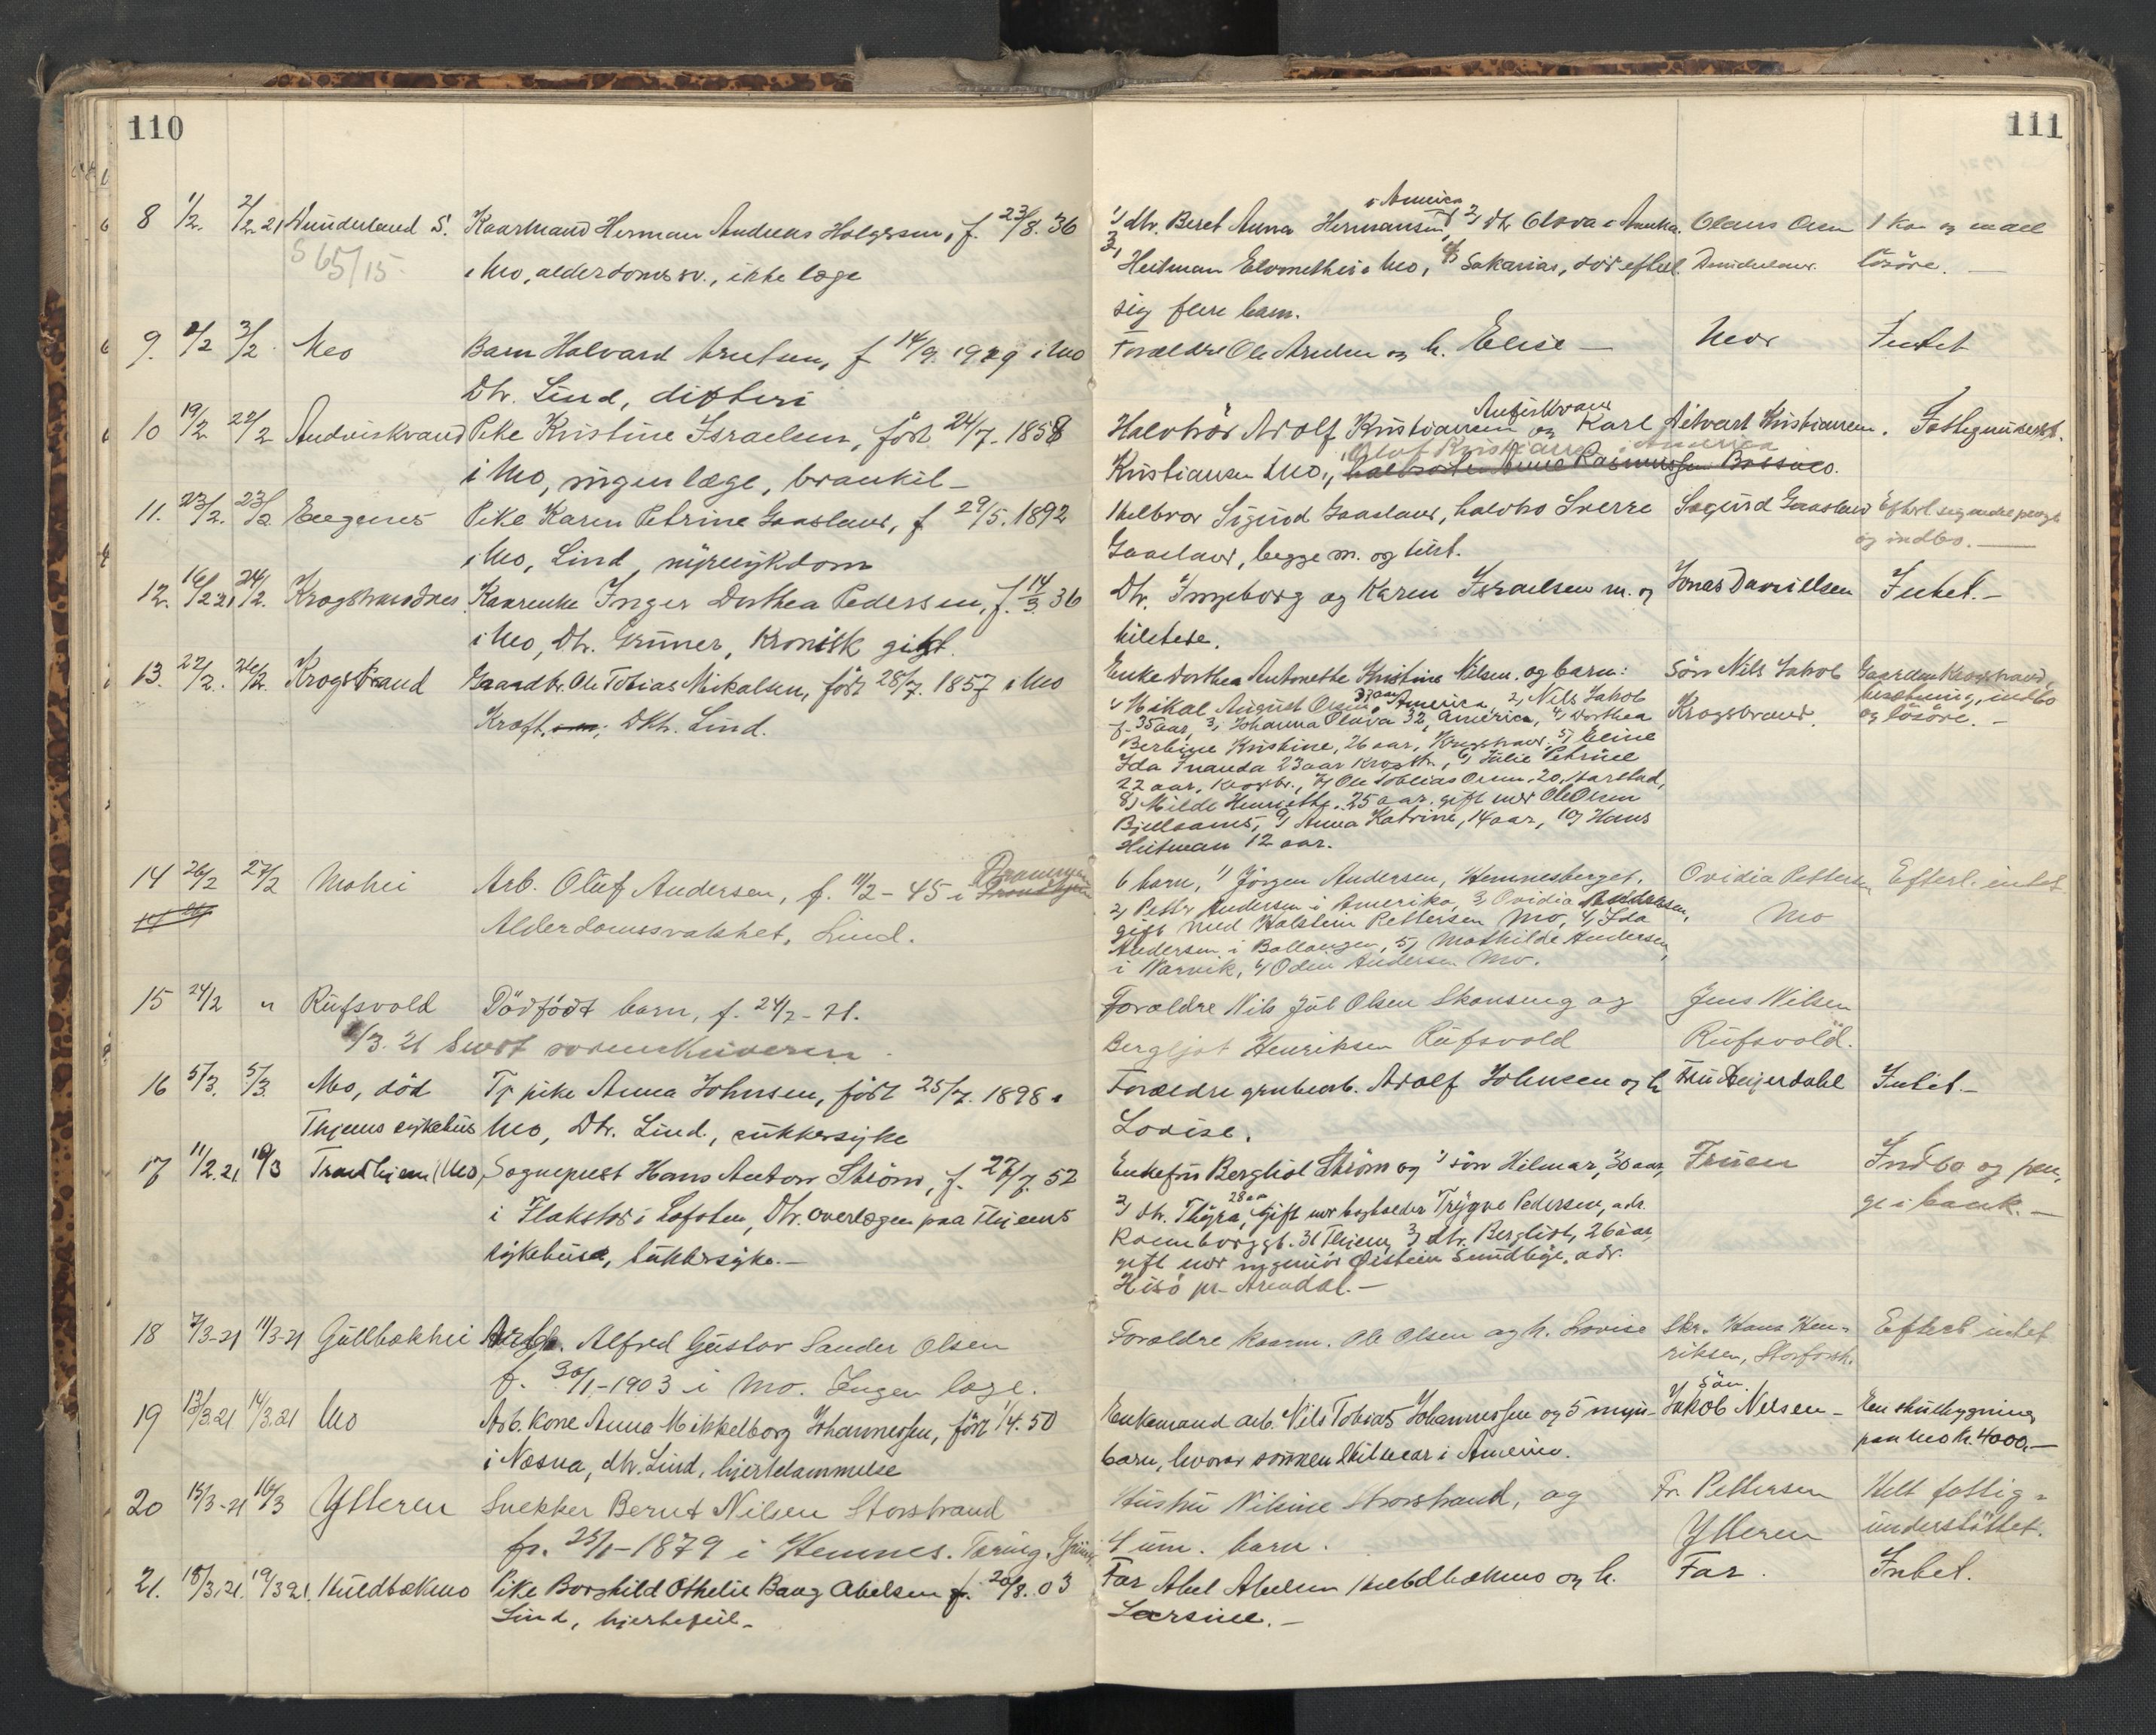 110
8 1/2. 2/2 21 Dunderland S. Kaarmand Herman Andreas Holgersen, f. 23/8. 36
S 65/15
i Mo, alderdomssv., ikke læge
9. 2/2 3/2 Mo Barn Halvard Arntsen, f 14/9. 1929 i Mo
Dr. Lind, difteri
10 19/2 22/2 Andviskvand Pike Kristine Israelsen, född 24/7. 1858
i Mo, ingen læge,
11. 23/2. 23/2 Engenes Pike Karen Petrine Gaaslaus, f 29/5. 1892
i Mo, Lind, nyresykdom
12. 16/2 21, 24/2. Krogstrandnes Kaarenke Inger Dorthea Pedersen, f. 14/3 36
i Mo, Dr. Grüner, Kronisk gigt.
13. 22/2. 26/2. Krogstrand Gaardbr. Ole Tobias Mikalsen, född 28/7. 1857 i Mo
Kræft, Dr. Lind.
14 26/2 27/2 Mohei Arb. Oluf Andersen, f. 11/2 - 45 i Trondhjem
Alderdomssvakhet, Lind.
15 24/2 " Rufsvold Dödfödt barn, f. 24/2 - 21.
/3. 21 Sendt
16 5/3. 5/3. Mo, död Tj pike Anna Johnsen, född 25/7. 1898 i
Thjems sykehus Mo, Dr. Lind., sukkersyke
17 11/2. 21 10/3 Trondhjem (Mo) Sogneprest Hans Anton Ström, f. 27/7. 52
i Flakstad i Lofoten, Dr. overlægen paa Thjems
sykehus, sukkersyke. -
18 7/3-21 11/3-21 Gullbakhei Alfred Gustav Sander Olsen
f. 30/1-1903 i Mo. Ingen læge.
19 13/3.21 14/3.21 Mo Arb. kone Anna Mikkelborg Johannessen, född 1/4. 50
i Næsna, dr. Lind, hjertelammelse
20 15/3-21 16/3 Ytteren Snekker Bernt Nilsen Storstrand
f. 25/1-1879 i Hemnes. Tæring. Grüner
21. 18/3. 21. 19/3 21. Kuldbækmo Pike Borghild Othelie Bang Abelsen f. 20/8. 03
Lind, hjertefeil -
111
i America
1) dtr. Beret Anna Hermansen 2) dtr Olava i Amerika. Olaus Olsen 1 ko og endel
3) Heitman i Mo, 4) Sakarias, död efterl. Dunderland. lösöre. -
sig flere barn.
Forældre Ole Arntsen og h. Elise - Mor Intet
Andfiskvand
Halvbrör Adolf Kristiansen og Karl Hilvart Kristiansen. Fattigunderst.
Oluf Kristiansen i America
Kristiansen Mo, halvsöster Anna Rasmussen Bossmo.
Helbror Sigurd Gaaslaus, halvbro Sverre Sigurd Gaaslaus Efterl. sig endel penge
Gaaslaus, begge m. og tilst. og indbo. -
Dtr. Ingeborg og Karen Israelsen m. og Jonas Daniellsen Intet. -
tilstede.
Enke Dorthea Antonette Kristine Nilsen. og barn: Sön Nils Jakob Gaarden Krogstrand,
1) Mikal August Olsen America, 2) Nils Jakob besetning, indbo
f. 35 aar, 3) Johanna Olava 32, America, 4) Dorthea Krogstrand. og lösöre. -
Berbine Kristine, 26 aar, Krogstrand, 5) Eline
Ida Inanda 23 aar Krogstr., 6) Julie Petrine
22 aar, Krogstr., 7) Ole Tobias Olsen, 20, Harstad,
8) Milde Henriette, 25 aar, gift med Ole Olsen
Bjellaanes, 9) Anna Katrine, 14 aar, 10) Hans
Heitman 12 aar.
6 barn, 1) Jörgen Andersen, Hemnesberget, Ovidia Pettersen Efterl. intet
2) Petter Andersen i Amerika, 3) Ovidia Andersen,
gift med Halstein Pettersen Mo, 4) Ida Mo
Andersen i Ballangen, 5) Mathilde Andersen,
i Narvik, 6) Odin Andersen Mo.
Forældre Nils Jul Olsen Skonseng og Jens Nilsen
Bergljot Henriksen Rufsvold Rufsvold.
Forældre grubearb. Adolf Johnsen og h. Fru Meijerdahl Intet -
Lovise.
Enkefru Bergliot Ström og 1) sön Hilmar, 30 aar, Fruen Indbo og pen-
2) dtr. Thyra, 28 aar gift med bogholder Trygve Pedersen, adr. ge i bank. -
Rosenborggt. 31 Thjem, 3) dtr. Bergliot, 26 aar,
gift med ingeniör Öistein Sundböe, adr.
Hisö pr. Arendal. -
Forældre kaarm. Ole Olsen og h. Lovise Skr. Hans Hen- Efterl. intet
riksen, Storforsh.
Sön
Enkemand arb. Nils Tobias Johannessen og 5 myn- Jakob Nilsen - En stuebygning
barn, hvorav sönnen Hilmar i Amerika. paa Mo kr. 4000. -
Hustru Nilsine Storstrand, og Fr. Pettersen Helt fattig-
4 um. barn. Ytteren understöttet.
Far Abel Abelsen Kuldbækmo og h. Far. Intet.
Larsine. -